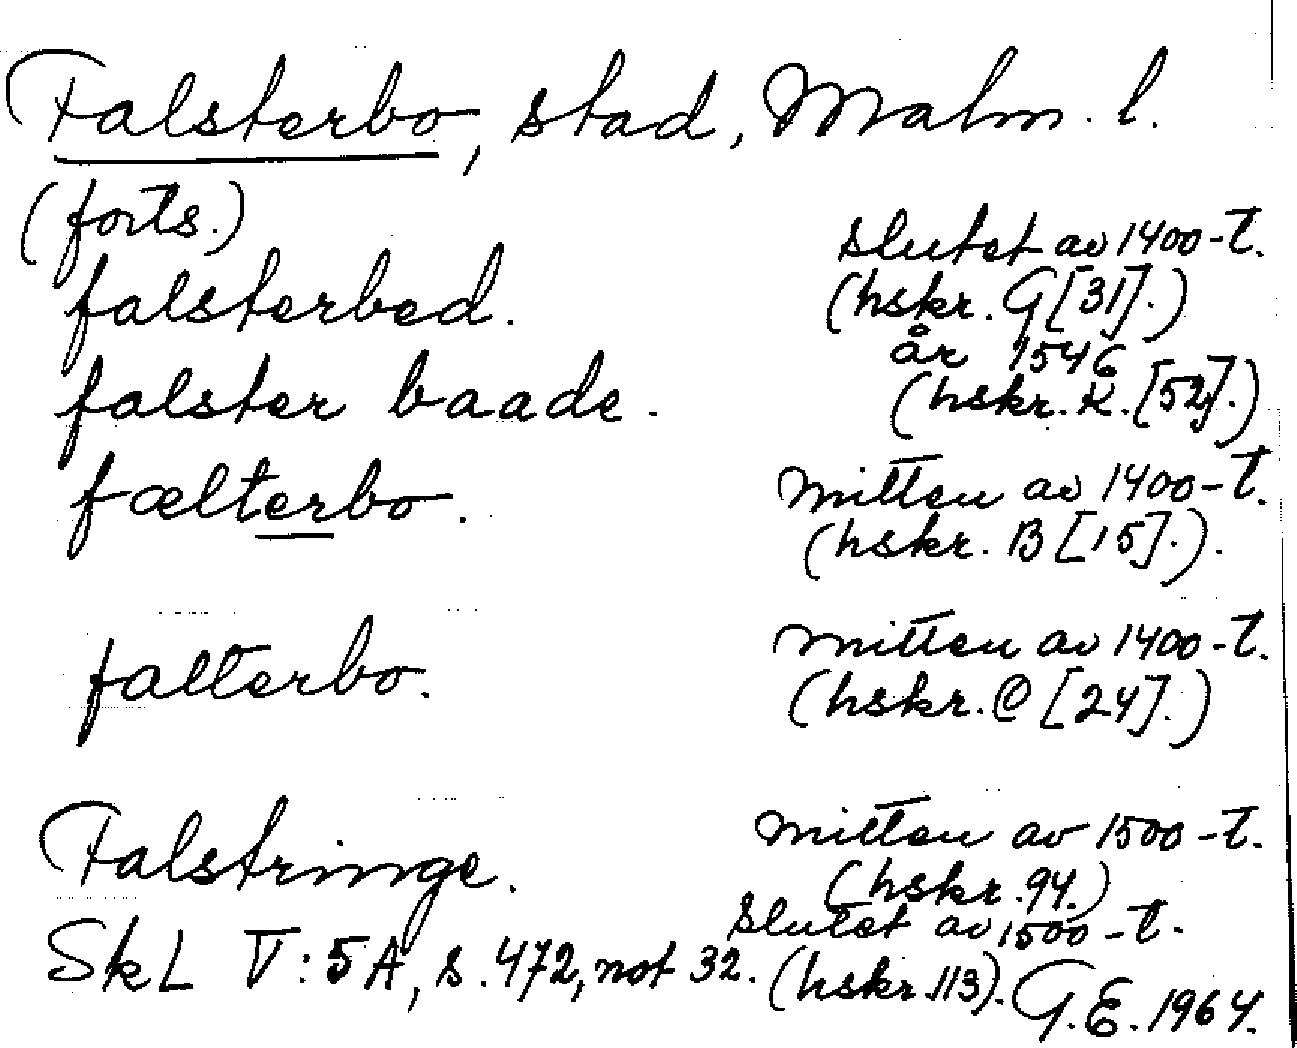 Falsterbo, stad, Malm. l.
(forts.)
falsterbod. slutet av 1400-t.
(hskr. G [31].)
falster baade. år 1546
(hskr. K. [52].)
fælterbo. mitten av 1400-t.
(hskr. B [15].).
falterbo. mitten av 1400-t.
(hskr. @ [24].)
Falstringe. mitten av 1500-t.
(hskr. 94.)
slutet av 1500-t.
(hskr. 113).
SkL V:5A, s. 472, not 32.
G.E. 1964.